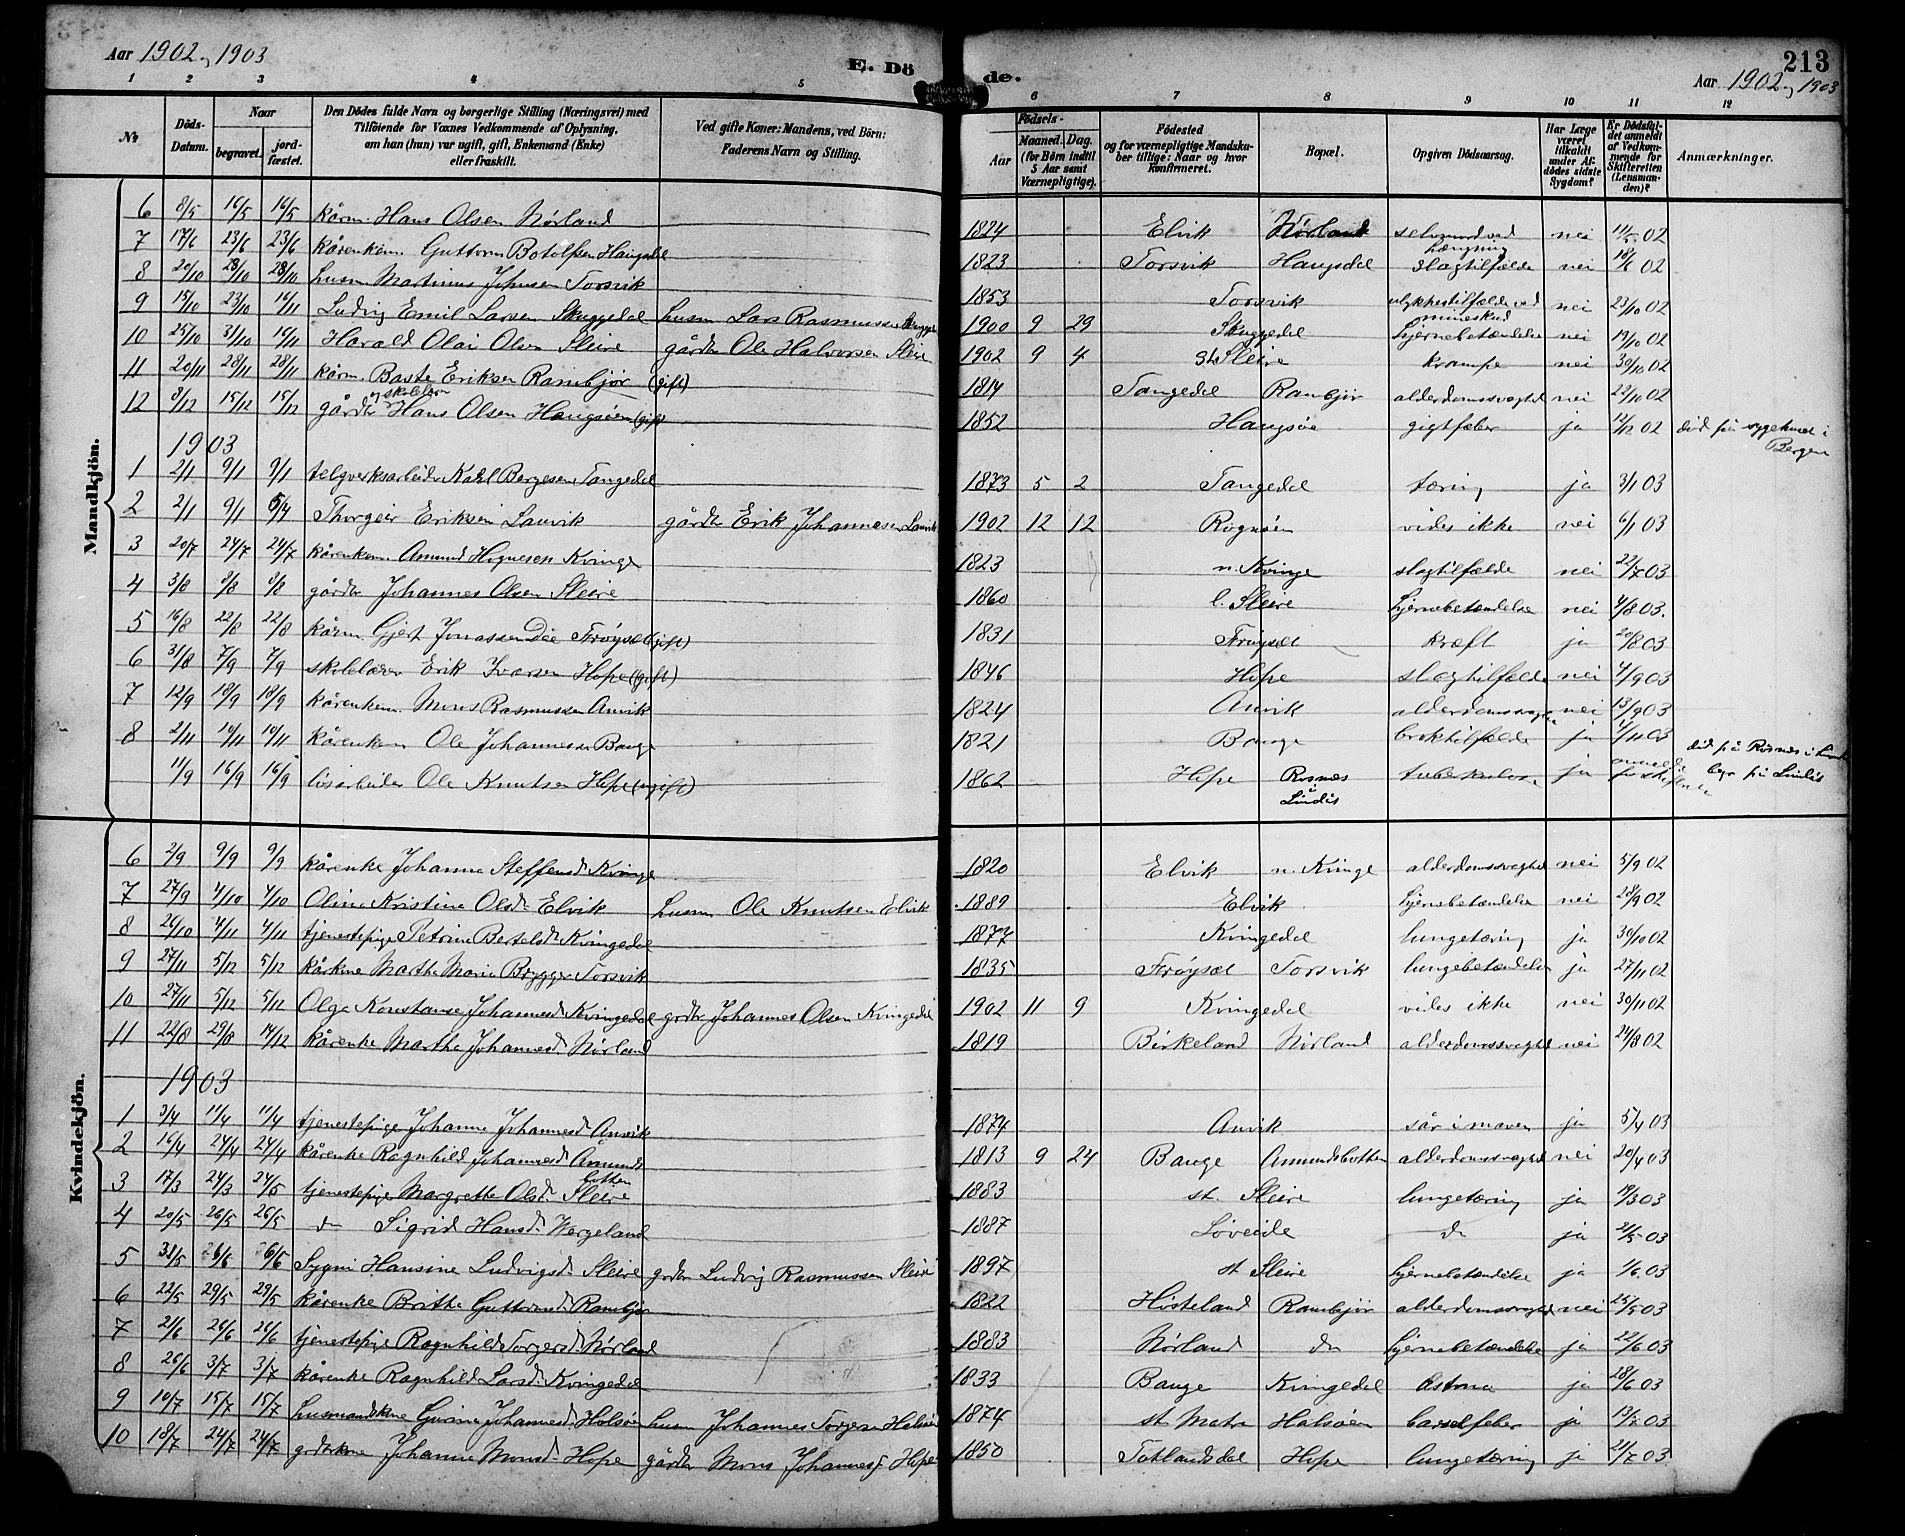 Aar 1902 og 1903
E. Dö
de.
213
Aar 1902 og 1903
1 2 3 4 5 6 7 8 9 10 11 12
No
Döds-Datum.
Naar
begravet.
jordfæstet.
Den Dödes fulde Navn og borgerlige Stilling (Næringsvei) med
Tilföiende for Voxnes Vedkommende af Oplysning,
om han (hun) var ugift, gift, Enkemand (Enke)
eller fraskilt.
Ved gifte Koner: Mandens, ved Börn:
Faderens Navn og Stilling.
Födsels-
Aar
Maaned. Dag.
(for Börn indtil
5 Aar samt
Værnepligtige).
Födested
og for værnepligtige Mandskaber tillige: Naar og hvor
konfirmeret.
Bopæl.
Opgiven Dödsaarsag.
Har Læge
været
tilkaldt
under Afdödes sidste
Sygdom?
Er Dödsfaldet anmeldt
af Vedkommende for
Skifteretten
(Lensmanden)?
Anmærkninger.
Mandkjön.
6 8/5 16/5 16/5 kårm. Hans Olsen Nörland 1824 Elvik Nörland selvmord ved hængning nei 11/5 02
7 17/6 23/6 23/6 kårenkem. Guttorm Botolfsen Haugsdal 1823 Torsvik Haugsdal slagtilfælde nei 18/6 02
8 20/10 28/10 28/10 husm. Martinus Johnsen Torsvik 1853 Torsvik ulykkestilfælde ved mineskud nei 23/10 02
9 15/10 23/10 16/11 Ludvig Emil Larsen Skuggedal husm Lars Rasmussen Skugge 1900 9 29 Skuggedal hjernebetændelse nei 19/10 02
10 25/10 31/10 16/11 Harald Olai Olsen Sleire gårdbr Ole Halvorsen Sleire 1902 9 4 St. Sleire krampe nei 30/10 02
11 20/11 28/11 28/11 kårm. Baste Eriksen Rambjör (gift) 1814 Tangedal Rambjör alderdomssvaghed nei 22/10 02
12 3/12 15/12 15/12 gårdbr og skolelærer Hans Olsen Haugsöen (gift) 1852 Haugsöe gigtfeber ja 12/12 02 död på sygehuset i Bergen
1903
1 2/1 9/1 9/1 telgverksarbeider Karl Bergesen Tangedal 1873 5 2 Tangedal tæring ja 3/1 03
2 2/1 9/1 5/4 Thorgeir Eriksen Lauvik gårdbr Erik Johannesen Lauvik 1902 12 12 Rognöen vides ikke nei 6/1 03
3 20/7 24/7 24/7 kårenkem. Amund Hognesen Kvinge 1823 n. Kvinge slagtilfælde nei 22/7 03
4 3/8 8/8 8/8 gårdbr Johannes Olsen Sleire 1860 l. Sleire hjernebetændelse nei 4/8 03.
5 16/8 22/8 22/8 kårm. Gjert Jonassen Dåe Fröyset (gift) 1831 Fröyset kræft ja 20/8 03
6 31/8 7/9 7/9 skolelærer Erik Ivarsen Hope (gift) 1846 Hope slagtilfælde nei 4/9 03
7 12/9 18/9 18/9 kårenkem. Mons Rasmussen Anvik 1824 Anvik alderdomssvaghe nei 13/9 03
8 2/11 10/11 10/11 kårenkem Ole Johannesen Bauge 1821 Bauge broktilfælde ja 4/11 03
11/9 16/9 16/9 lösarbeider Ole Knutsen Hope (ugift) 1862 Hope Rosnes i Lindås tuberkulose ja död på Rosnes i Lindås begr på Lindås
Kvindekjön.
6 2/9 9/9 9/9 kårenke Johanne Steffensd. Kvinge 1820 Elvik n. Kvinge alderdomssvaghed nei 5/9 02
7 27/9 4/10 4/10 Oline Kristine Olsd. Elvik husm Ole Knutsen Elvik 1889 Elvik hjernebetændelse nei 28/9 02
8 26/10 4/11 4/11 tjenestepige Petrine Bertelsd. Kvingedal 1877 Kvingedal lungetæring ja 30/10 02
9 27/11 5/12 5/12 kårkone Marthe Marie Brygger Torsvik 1835 Fröyset Torsvik lungebetændelse ja 27/11 02
10 27/11 5/12 5/12 Olga Konstanse Johannesd. Kvingedal grdbr Johannes Olsen Kvingedal 1902 11 9 Kvingedal vides ikke nei 30/11 02
11 22/8 29/8 14/12 kårenke Marthe Johannesd. Nörland 1819 Birkeland Nörland alderdomssvaghed nei 24/8 02
1903
1 3/4 11/4 11/4 tjenestepige Johanne Johannesd. Anvik 1874 Anvik sår i maven ja 5/4 03
2 16/4 24/4 24/4 kårenke Ragnhild Johannesd. Åmundsbotten 1813 9 24 Bauge Åmundsbotten alderdomssvaghed nei 20/4 03
3 17/3 24/3 24/5 tjenestepige Margrethe Olsd. Sleire 1883 st. Sleire lungetæring ja 19/3 03
4 20/5 26/5 26/5 do Sigrid Hansd. Wergeland 1887 Löveide do ja 21/5 03
5 31/5 6/6 Sygni Hansine Ludvigsd. Sleire grdbr Ludvig Rasmussen Sleire 1897 st Sleire hjernebetændelse ja 1/6 03
6 22/5 29/5 29/5 kårenke Brithe Guttormsd. Rambjör 1822 Hösteland Rambjör alderdomssvaghed nei 25/5 03
7 21/6 26/6 26/6 tjenestepige Ragnhild Torgersd. Nörland 1883 Nörland do hjernebetændelse ja 22/6 03
8 26/6 3/7 3/7 kårenke Ragnhild Larsd. Kvingedal 1833 Bauge Kvingedal Astma ja 28/6 03
9 10/7 15/7 15/7 husmandskone Gurine Johannesd. Holsöen husm Johannes Torgersen Halsöen 1874 st. Matre Halsöen barselfeber ja 13/7 03
10 18/7 24/7 24/7 grdbrkone Johanne Monsd. Hope gårdbr Mons Johannes. Hope 1850 Totlandsdal Hope lungetæring ja 21/7 03